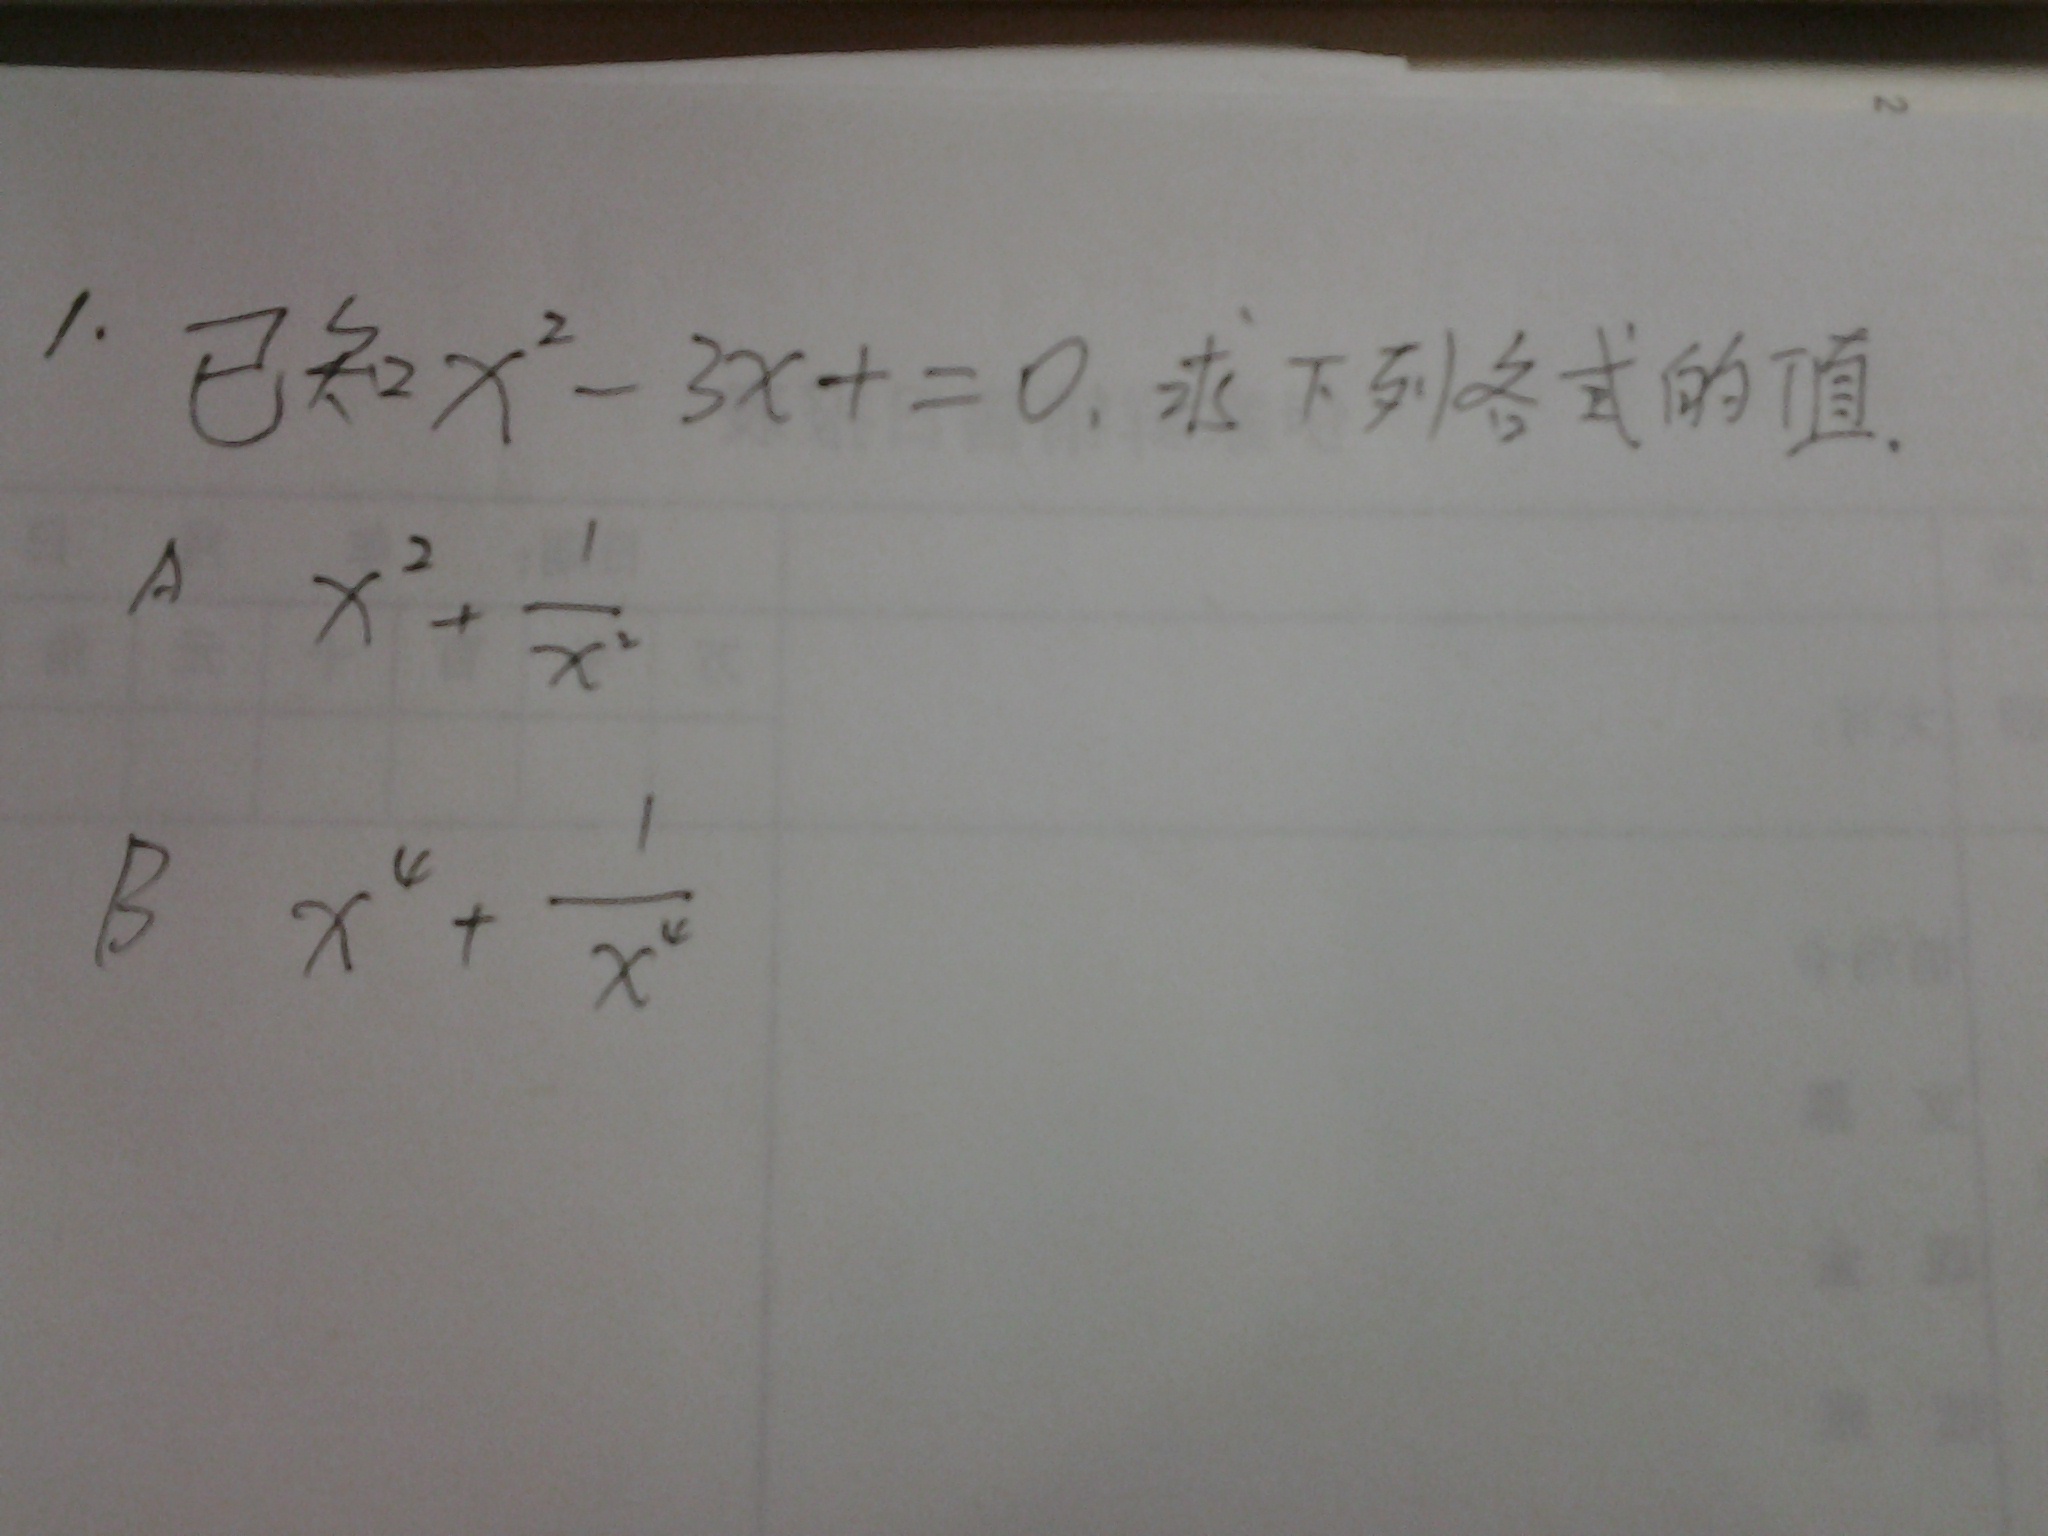 2
1. 已知x² - 3x + = 0. 求下列各式的值.
A x² + 1/x²
B x⁴ + 1/x⁴